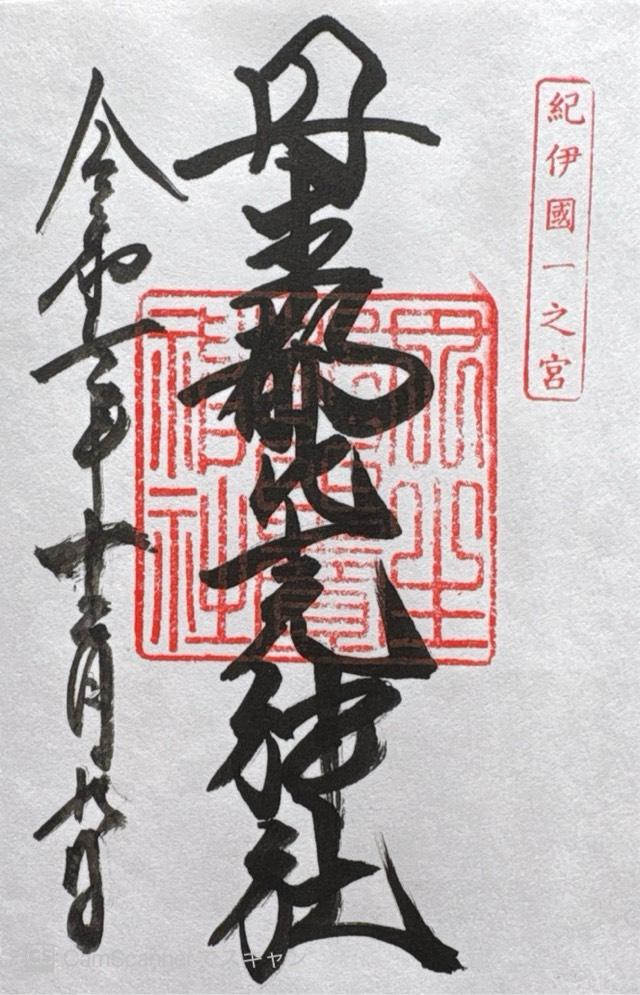 紀伊國一之宮
丹生都比売神社
丹生都比賣神社
令和二年十二月九日
CS CamScanner でスキャン